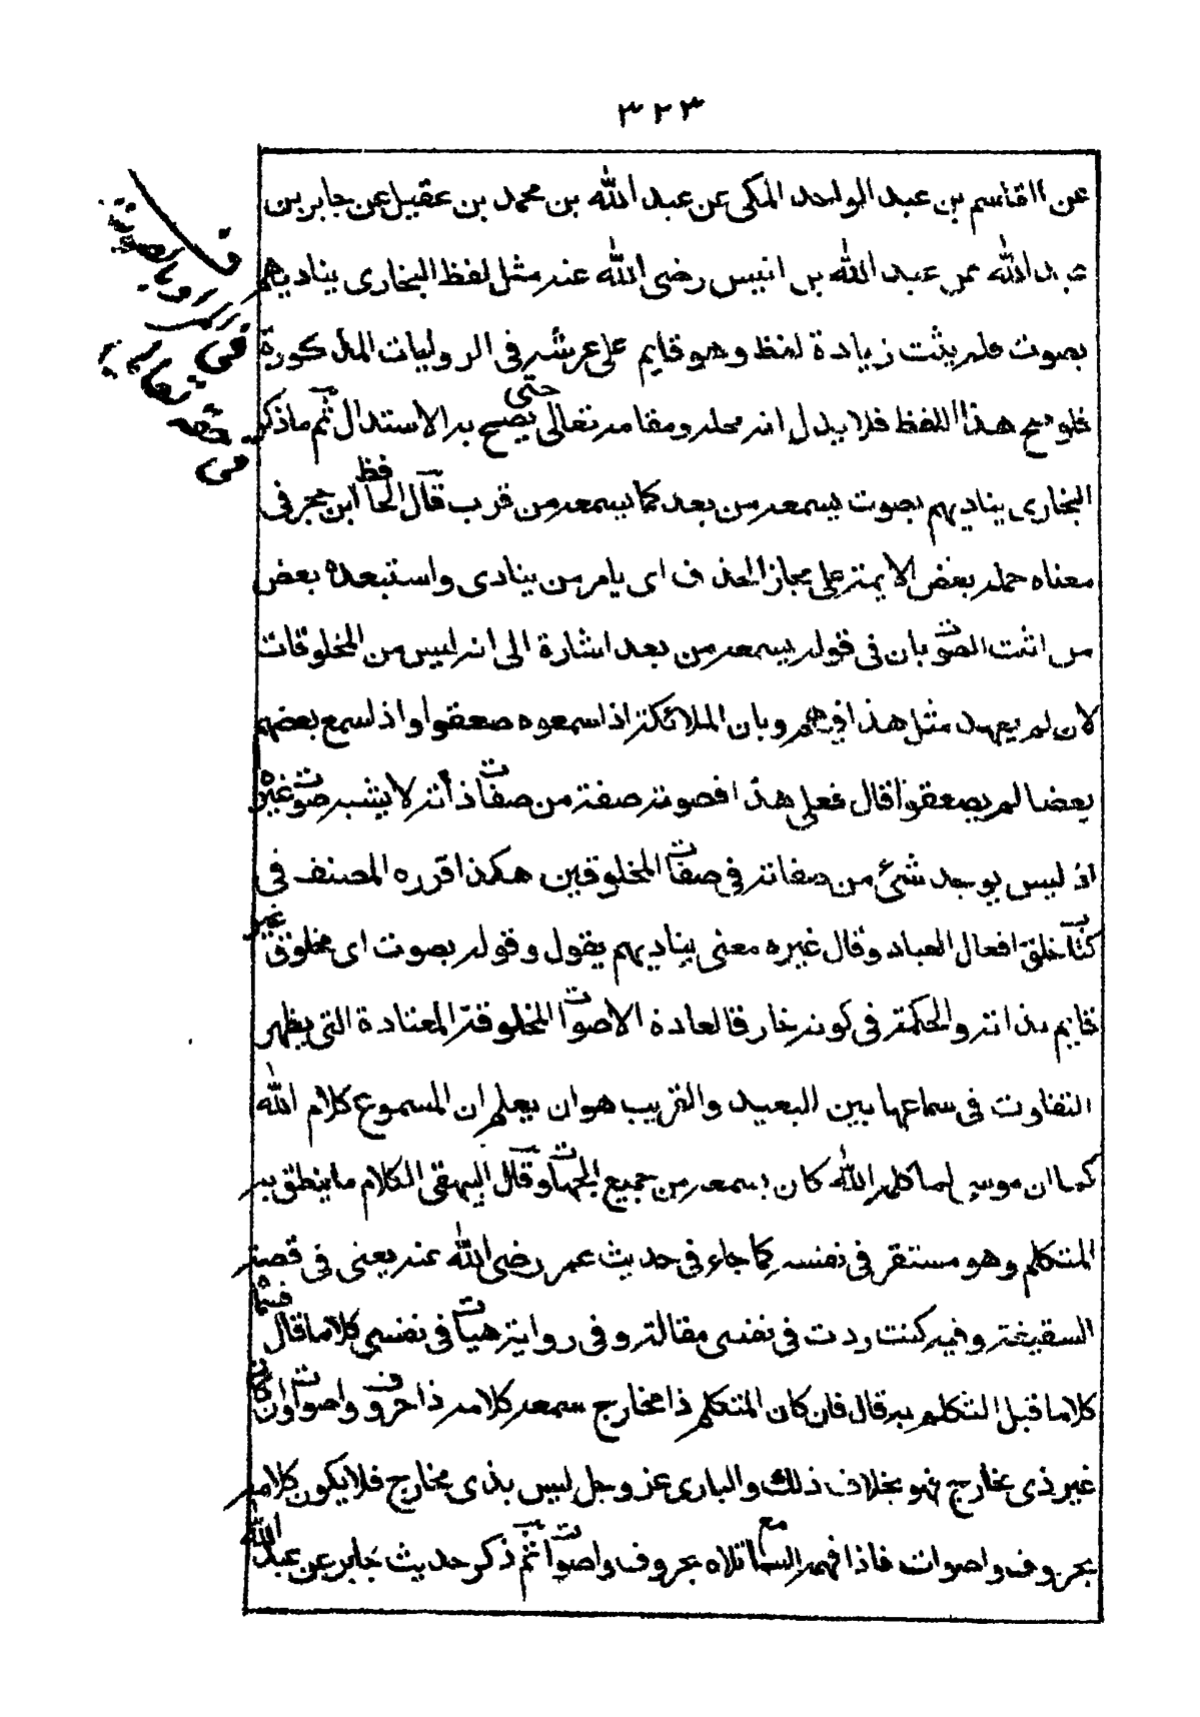 ٣٢٣
عن القاسم بن عبد الواحد المكى عن عبد الله بن محمد بن عقيل عن جابر بن
عبد الله عن عبد الله بن انيس رضى الله عنه مثل لفظ البخارى يناديهم
بصوت فلم يثبت زيادة لفظ وهو قايم على عرشه فى الروايات المذكورة
فلو صح هذا اللفظ فلا يدل انه محله ومقامه تعالى حتى يصح به الاستدلال ثم ما ذكر
البخارى يناديهم بصوت يسمعه من بعد كما يسمعه من قرب قال الحافظ ابن حجر فى
معناه حمله بعض الايمة على مجاز الحذف اى يامر من ينادى واستبعده بعض
من اثبت الصوت بان فى قوله يسمعه من بعد اشارة الى انه ليس من المخلوقات
لان لم يعهد مثل هذا فيهم وبان الملائكة اذا سمعوه صعقوا واذا سمع بعضهم
بعضا لم يصعقوا قال فعلى هذا فصوته صفة من صفات ذاته لا يشبه صوت غيره
اذ ليس يوجد شئ من صفاته فى صفات المخلوقين هكذا قرره المصنف فى
كتاب خلق افعال العباد وقال غيره معنى يناديهم يقول وقوله بصوت اى مخلوق غير
قايم بذاته والحكمة فى كونه خارقا لعادة الاصوات المخلوقة المعتادة التى يظهر
التفاوت فى سماعها بين البعيد والقريب هو ان يعلم ان المسموع كلام الله
كما ان موسى لما كلمه الله كان يسمعه من جميع الجهات وقال البيهقى الكلام ما ينطق به
المتكلم وهو مستقر فى نفسه كما جاء فى حديث عمر رضى الله عنه يعنى فى قصة
السقيفة وفيه كنت زورت فى نفسى مقالة وفى رواية هيات فى نفسى كلاما قال فسماه
كلاما قبل التكلم به قال فان كان المتكلم ذا مخارج سمعه كلامه ذا حروف واصوات وان كان
غير ذى مخارج فهو بخلاف ذلك والبارى عز وجل ليس بذى مخارج فلا يكون كلامه
بحروف واصوات فاذا فهمه السامع تلاه بحروف واصوات ثم ذكر حديث جابر عن عبد الله
فى
حقه تعالى